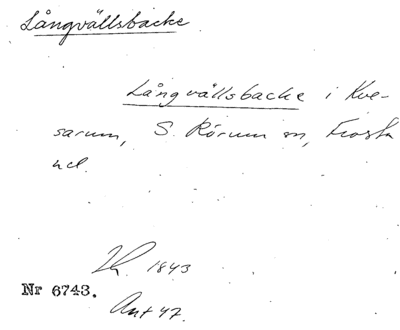 Långvällsbacke
Långvällsbacke i Kve-
sarum, S. Rörum sn, Frosta
hd.
1843
Nr 6743.
Ant 47.